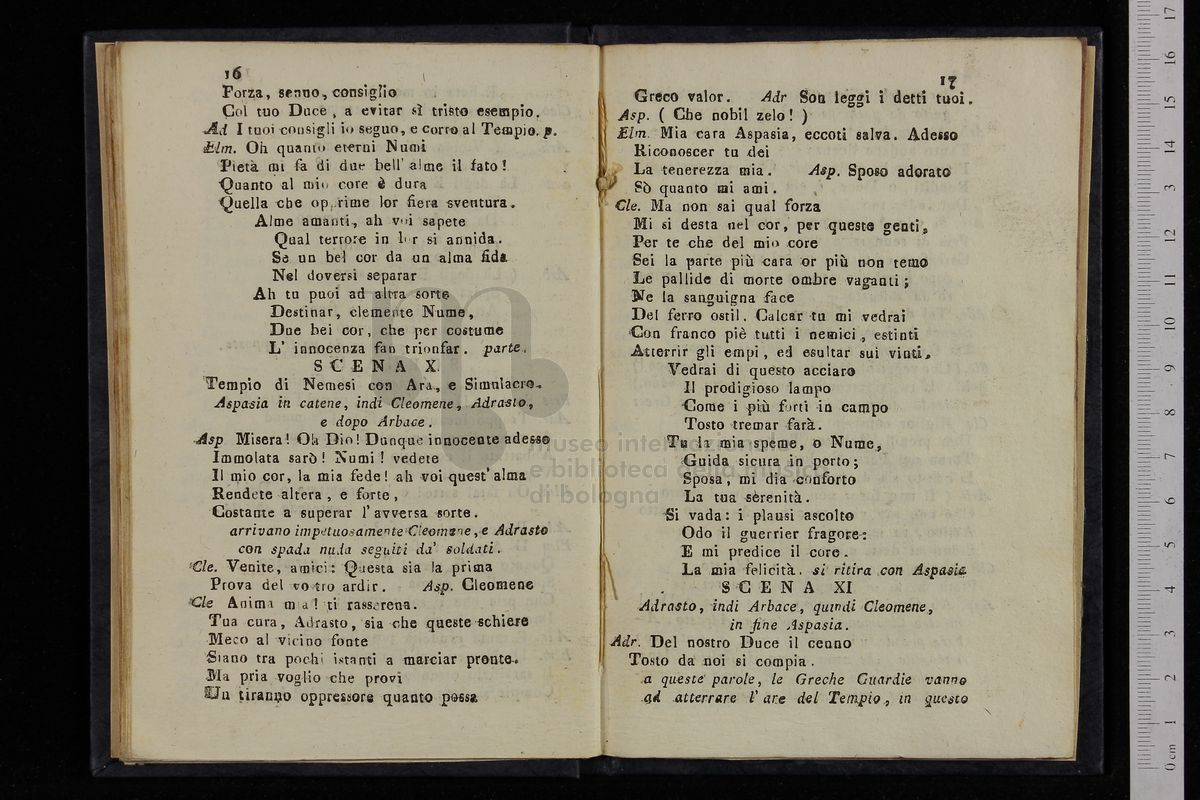 16
Forza, senno, consiglio
Col tuo Duce, a evitar sì tristo esempio.
Ad I tuoi consigli io seguo, e corro al Tempio. p.
Elm. Oh quanto eterni Numi
Pietà mi fa di due bell' alme il fato!
Quanto al mio core è dura
Quella che opprime lor fiera sventura.
Alme amanti, ah voi sapete
Qual terrore in lor si annida.
Se un bel cor da un alma fida
Nel doversi separar
Ah tu puoi ad altra sorte
Destinar, clemente Nume,
Due bei cor, che per costume
L' innocenza fan trionfar. parte.
SCENA X.
Tempio di Nemesi con Ara, e Simulacro.
Aspasia in catene, indi Cleomene, Adrasto,
e dopo Arbace.
Asp Misera! Oh Dio! Dunque innocente adesso
Immolata sarò! Numi! vedete
Il mio cor, la mia fede! ah voi quest' alma
Rendete altera, e forte,
Costante a superar l' avversa sorte.
arrivano impetuosamente Cleomene, e Adrasto
con spada nuda seguiti da' soldati.
Cle. Venite, amici: Questa sia la prima
Prova del vostro ardir. Asp. Cleomene
Cle Anima mia! ti rasserena.
Tua cura, Adrasto, sia che queste schiere
Meco al vicino fonte
Siano tra pochi istanti a marciar pronte.
Ma pria voglio che provi
Un tiranno oppressore quanto possa
17
Greco valor. Adr Son leggi i detti tuoi.
Asp. ( Che nobil zelo! )
Elm. Mia cara Aspasia, eccoti salva. Adesso
Riconoscer tu dei
La tenerezza mia. Asp. Sposo adorato
Sò quanto mi ami.
Cle. Ma non sai qual forza
Mi si desta nel cor, per queste genti,
Per te che del mio core
Sei la parte più cara or più non temo
Le pallide di morte ombre vaganti;
Ne la sanguigna face
Del ferro ostil. Calcar tu mi vedrai
Con franco piè tutti i nemici, estinti
Atterrir gli empi, ed esultar sui vinti.
Vedrai di questo acciaro
Il prodigioso lampo
Come i più forti in campo
Tosto tremar farà.
Tu la mia speme, o Nume,
Guida sicura in porto;
Sposa, mi dia conforto
La tua sèrenità.
Si vada: i plausi ascolto
Odo il guerrier fragore:
E mi predice il core.
La mia felicità. si ritira con Aspasia
SCENA XI
Adrasto, indi Arbace, quindi Cleomene,
in fine Aspasia.
Adr. Del nostro Duce il cenno
Tosto da noi si compia.
a queste parole, le Greche Guardie vanno
ad atterrare l' are del Tempio, in questo
museo internazionale
e biblioteca della musica
di bologna
0 cm 1 2 3 4 5 6 7 8 9 10 11 12 13 14 15 16 17